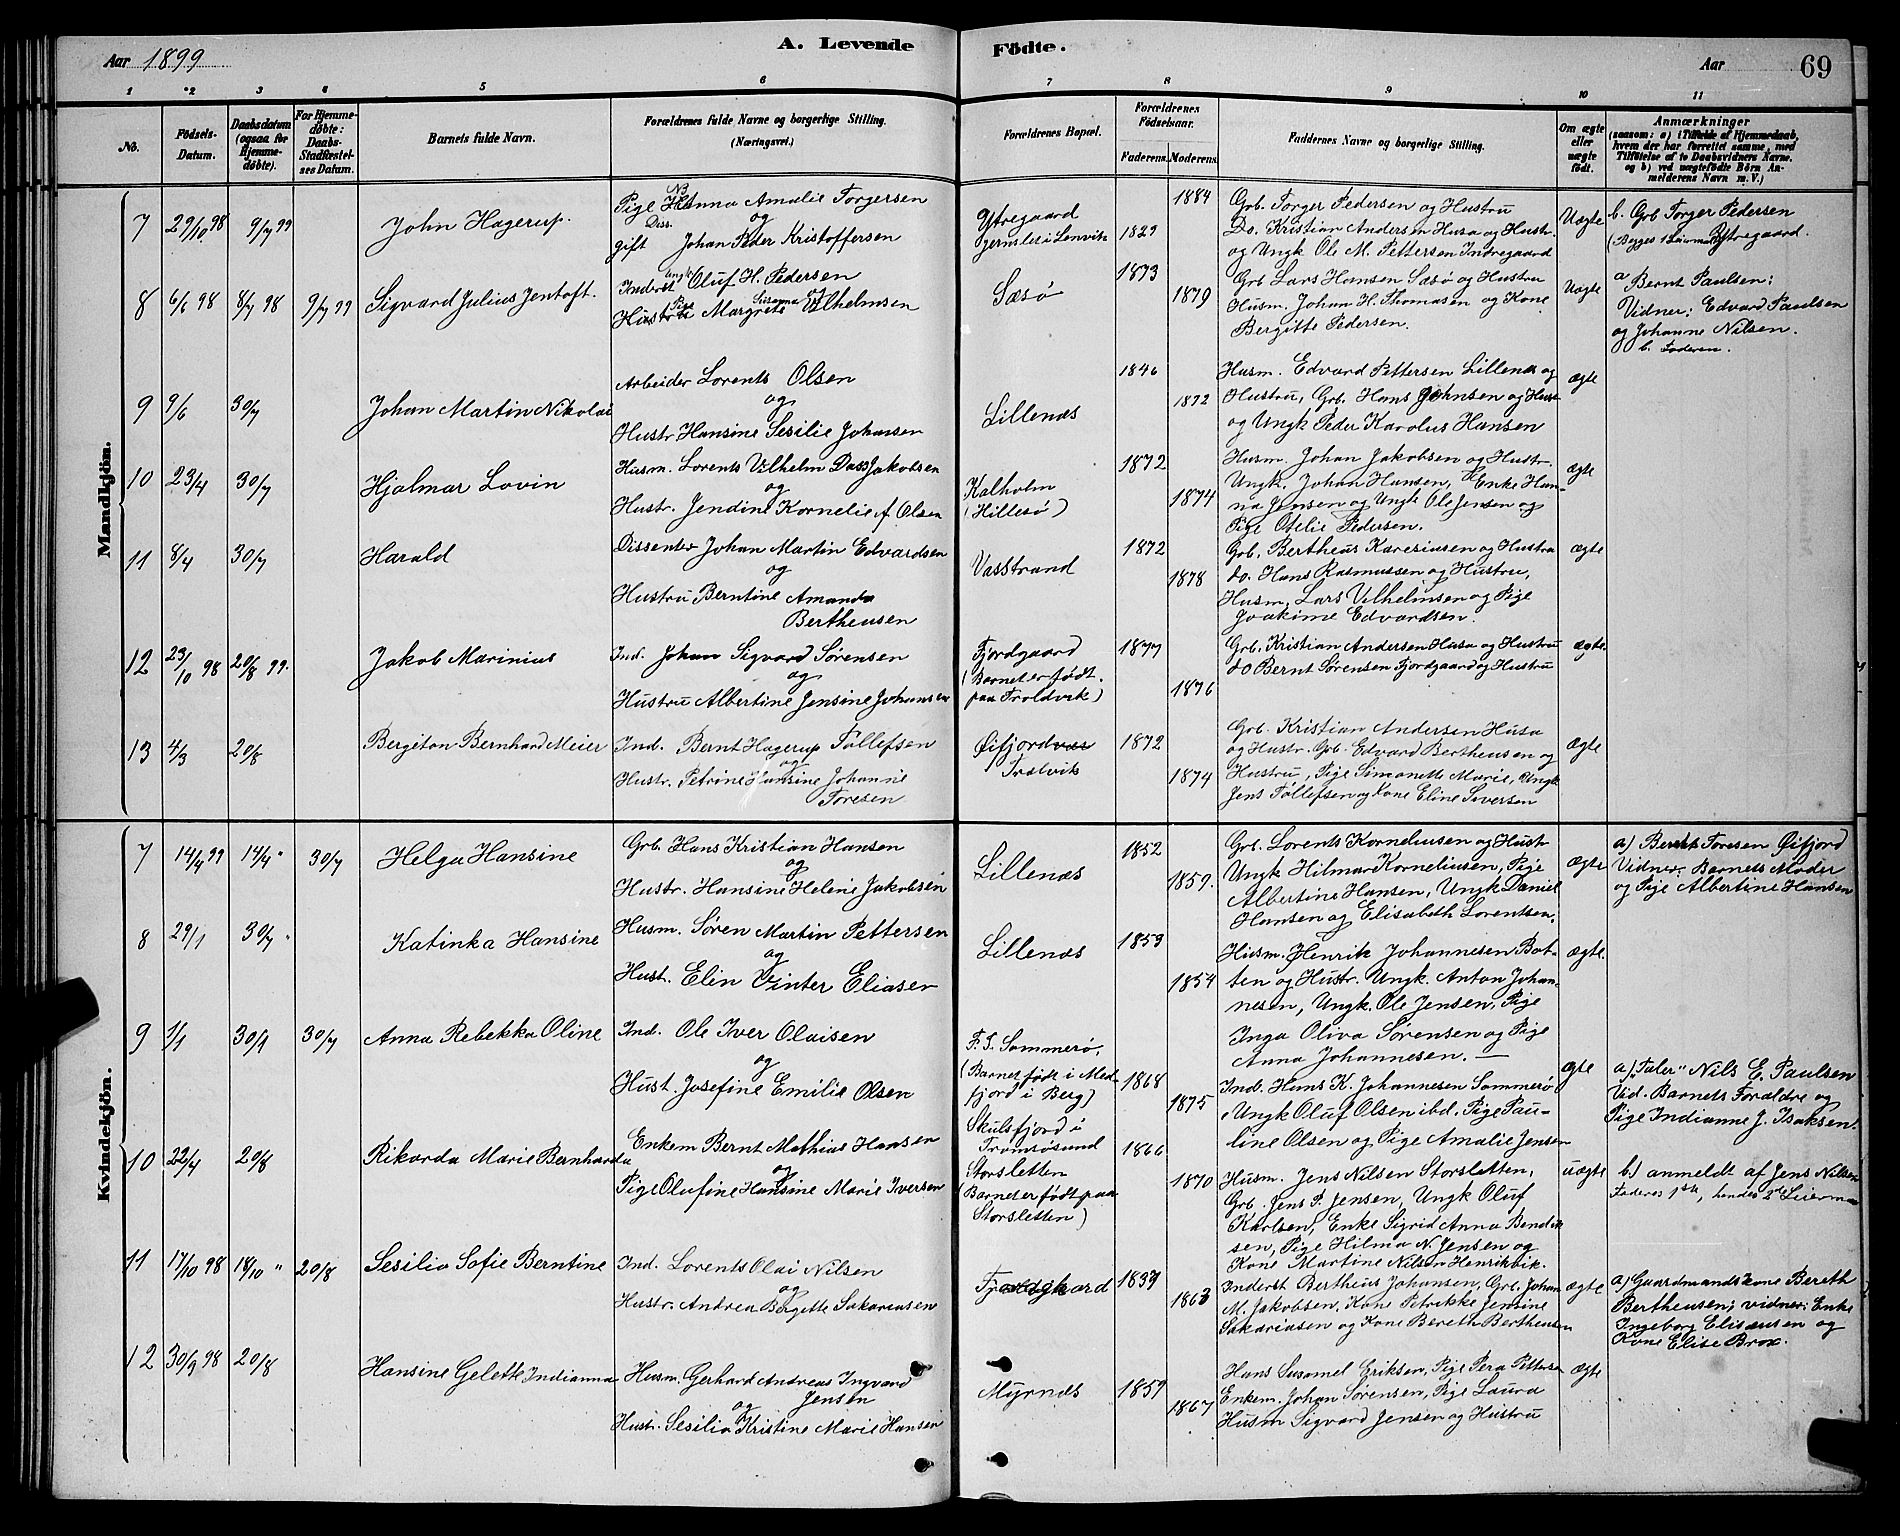 Aar 1899
A. Levende
Födte.
Aar
69
1 2 3 4 5 6 7 8 9 10 11
No.
Födsels-Datum.
Daabsdatum (ogsaa for Hjemmedøbte).
For Hjemmedøbte: Daabs-Stadfæstelses Datum.
Barnets fulde Navn.
Forældrenes fulde Navne og borgerlige Stilling.
(Næringsvei.)
Forældrenes Bopæl.
Forældrenes Födselsaar.
Faderens. Moderens.
Faddernes Navne og borgerlige Stilling.
Om ægte eller uægte født.
Anmærkninger
(saasom: a) i Tilfælde af Hjemmedaab, hvem der har forrettet samme, med Tilföielse af to Daabsvidners Navne. og b) ved uægtefödte Börn Anmelderens Navn m. V.)
Mandkjön.
7 29/10 98 9/7 99 John Hagerup.
Pige Hanna Amalie Torgersen
NB
Diss.
og
gift Johan Peder Kristoffersen
Ytregaard
Gjernslet i Lenvik
1884
1829
Grb. Torger Pedersen og Hustru
Do. Kristian Andersen Husa og Hustr.
og Ungk Ole M. Pettersen Indregaard
Uægte
b. Grb Torger Pedersen
Ytregaard.
(Begges 1 Leiermaal)
8 6/6 98 8/7 98 9/7 99 Sigvard Julius Jentoft.
Inderst Ungk Oluf H. Pedersen
og
Hustru Pige Margrete Susanna Vilhelmsen
Sæsø
1873
1879
Grb Lars Hansen Sæsø og Hustru
Husm. Johan H. Thomasen og Kone
Bergitte Pedersen.
Uægte
a Bernt Paulsen;
Vidner: Edvard Paulsen
og Johanne Nilsen.
b. Faderen.
9 9/6 30/7 Johan Martin Nikolai
Arbeider Lorents Olsen
og
Hustr Hansine Sesilie Johansen
Lillenæs
1846
1872
Husm. Edvard Pettersen Lillenæs og
Hustru, Grb. Hans Johnsen og Hust
og Ungk Peder Karolus Hansen
ægte
10 23/4 30/7 Hjalmar Lovin
Husm. Lorents Vilhelm Dass Jakobsen
og
Hustr. Jendine Kornelie f. Olsen
Kalholm
(Hillesø)
1872
1874
Husm. Johan Jakobsen og Hustr.
Ungk. Johan Hansen, Enke Han-
na Jensen og Ungk Ole Jensen og
Pige Otelie Pedersen.
ægte
11 8/4 30/7 Harald
Dissenter Johan Martin Edvardsen
og
Hustru Berntine Amanda
Bertheusen
Vasstrand
1872
1878
Grb. Bertheus Karesiusen og Hustru
do. Hans Rasmussen og Hustru,
Husm. Lars Vilhelmsen og Pige
Joakime Edvardsen.
ægte
12 23/10 98 20/8 99. Jakob Marinius
Ind. Johan Sigvard Sørensen
og
Hustru Albertine Jensine Johansen
Fjordgaard
(Barnet er født
paa Troldvik)
1877
1876
Grb. Kristian Andersen Husa og Hustru
do Bernt Sørensen Fjordgaard og Hustru
ægte.
13 4/3 20/8 Bergiton Bernhard Meier
Ind. Bernt Hagerup Tollefsen
og
Hustr. Petrine Hansine Johanne
Toresen
Øifjordvær
Trælvik
1872
1874
Grb. Kristian Andersen Husa
og Hustr. Grb. Edvard Bertheusen og
Hustru, Pige Simonette Marie, Ungk
Jens Tollefsen og Kone Eline Siversen
ægte
Kvindekjön.
7 14/4 99 14/4 " 30/7 Helga Hansine
Grb. Hans Kristian Hansen
og
Hustr. Hansine Helene Jakobsen
Lillenæs
1852
1859.
Grb. Lorents Korneliusen og Hustr
Ungk Hilmar Korneliusen, Pige
Albertine Hansen, Ungk Daniel
Hansen og Elisabeth Lorentsen.
ægte
a) Bernt Toresen Øifjord
Vidner: Barnets Moder
og Pige Albertine Hansen
8 29/1 30/7 " Katinka Hansine
Husm. Søren Martin Pettersen
og
Hust. Elin Vinter Eliasen
Lillenæs
1859
1854
Husm. Henrik Johannesen Bot-
ten og Hustr. Ungk. Anton Johan-
nesen, Ungk. Ole Jensen, Pige
Inga Oliva Sørensen og Pige
Anna Johannesen. —
ægte.
9 1/1 30/1 30/7 Anna Rebekka Oline
Ind. Ole Iver Olaisen
og
Hust. Josefine Emilie Olsen
F. S. Sommerø.
(Barnet født i Med-
fjord i Berg)
1868
1875
Ind. Hans K. Johannesen Sommerø
Ungk Oluf Olsen ibd, Pige Pau-
line Olsen og Pige Amalie Jensen
ægte
a) "Taler" Nils E. Paulsen
Vid. Barnets Forældre og
Pige Indianne J. Isaksen.
10 22/4 20/8 Rikarda Marie Bernharda
Enkem Bernt Mathias Hansen
og
Pige Olufine Hansine Marie Iversen
Skulsfjord i
Tromsøsund
Storsletten
(Barnet er født paa
Storsletten)
1866
1870
Husm. Jens Nilsen Storsletten,
Grb. Jens P. Jensen, Ungk Oluf
Karlsen, Enke Sigrid Anna Bendik
sen, Pige Hilma N. Jensen og
Kone Martine Nilsen Henrikvik.
uægte
b) anmeldt af Jens Nilsen
Faderes 1ste, hendes 2det Leierm
11 17/10 98 18/10 " 20/8 Sesilia Sofie Berntine
Ind. Lorents Olai Nilsen
og
Hustr. Andrea Bergette Sakariasen
1837
1863
Inderst Bertheus Johansen, Grb. Johan
M. Jakobsen, Kone Petrikke Jensine
Sakariasen og Kone Bereth Bertheusen
ægte
a) Gaardmandskone Bereth
Bertheusen; vidner: Enke
Ingeborg Eliseusen og
Kone Elise Brox.
12 30/9 98 20/8 Hansine Gelette Indianna
Husm. Gerhard Andreas Ingvard
Jensen
og
Hustr. Sesilia Kristine Marie Hansen
Myrnæs
1859
1867
Hans Susamel Eriksen, Pige Pera Pettersen
Enkem. Johan Sørensen, Pige Laura
Husm Sigvard Jensen og Hustru
ægte